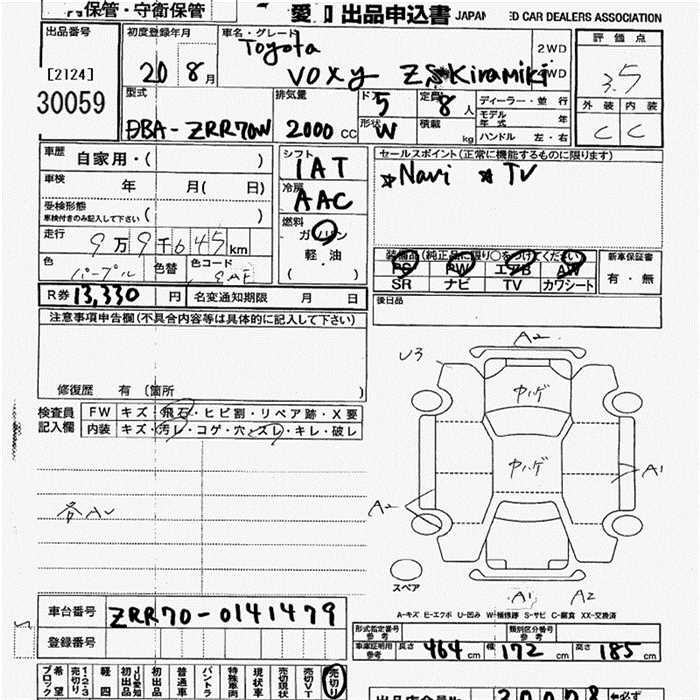 内保管・守衛保管
愛 出品申込書 JAPAN ED CAR DEALERS ASSOCIATION
出品番号 初度登録年月 車名・グレード 評価点
Toyota
[2124] 20 8月 VOXY ZS Kiramiki 2WD 4WD 3.5
30059 型式 排気量 ドア 5 定員 8人 ディーラー・並行 外装 内装
DBA-ZRR70W 2000CC 形状 W 積載 kg モデル年式 年 C C
ハンドル 左・右
車歴 自家用・( ) シフト IAT セールスポイント(正常に機能するものに限ります)
車検 年 月( 日) 冷房 AAC Navi TV
受検形態 車検付きのみ記入して下さい ( ) 燃料
走行 9万9千645km ガソリン
軽・油
( )
色 パープル 色替 色コード
装備品(純正品に限り○をつけてください) 新車保証書
PS PW エアB AW 有・無
SR ナビ TV カワシート
R券 13,330円 名変通知期限 月 日 後日品
注意事項申告欄(不具合内容等は具体的に記入して下さい)
修復歴 有 〔箇所 )
検査員記入欄 FW キズ・飛石・ヒビ割・リペア跡・X要
内装 キズ・汚レ・コゲ・穴・スレ・キレ・破レ
A2
U3
中ハゲ
中ハゲ
A1
A2
スペア
A1 A2
A-キズ E-エクボ U-凹み W-補修跡 S-サビ C-腐食 XX-交換済
車台番号 ZRR70-0141479
登録番号
型式指定番号 参考 類別区分番号 参考
車庫証明用 参考 長さ 464cm 幅 172cm 高さ 185cm
希望ブロック 1・2・3売切り 軽四 初出品 JU愛知初出品 普通車 バントラ 特殊車両 現状車 売切現状 売切VT 売切り